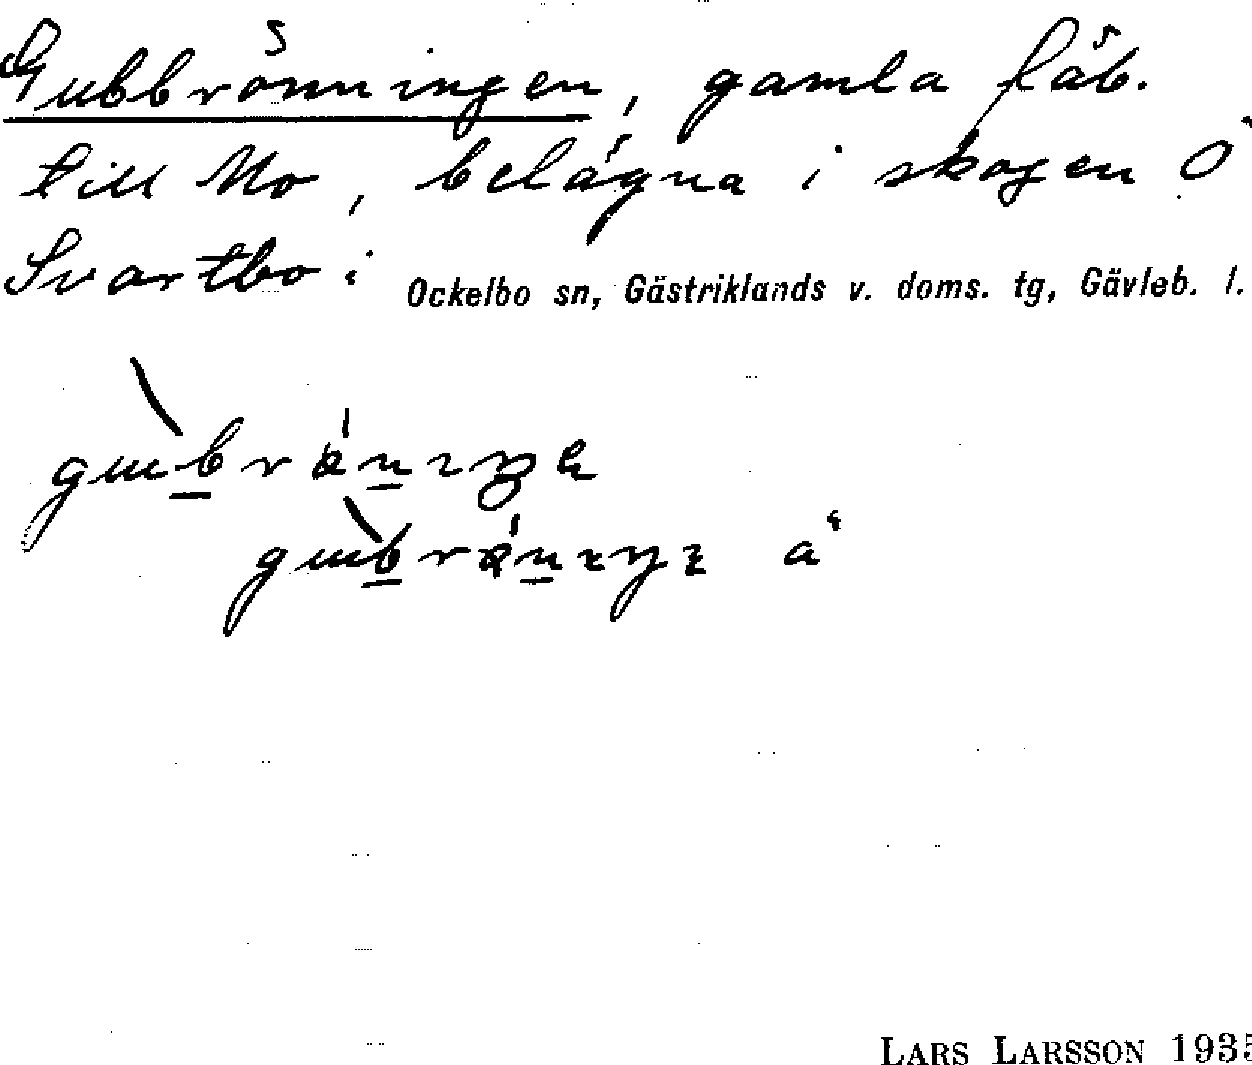 Gubbrönningen, gamla fäb.
till Mo, belägna i skogen Ö
Svartbo i Ockelbo sn, Gästriklands v. doms. tg, Gävleb. l.
LARS LARSSON 1935